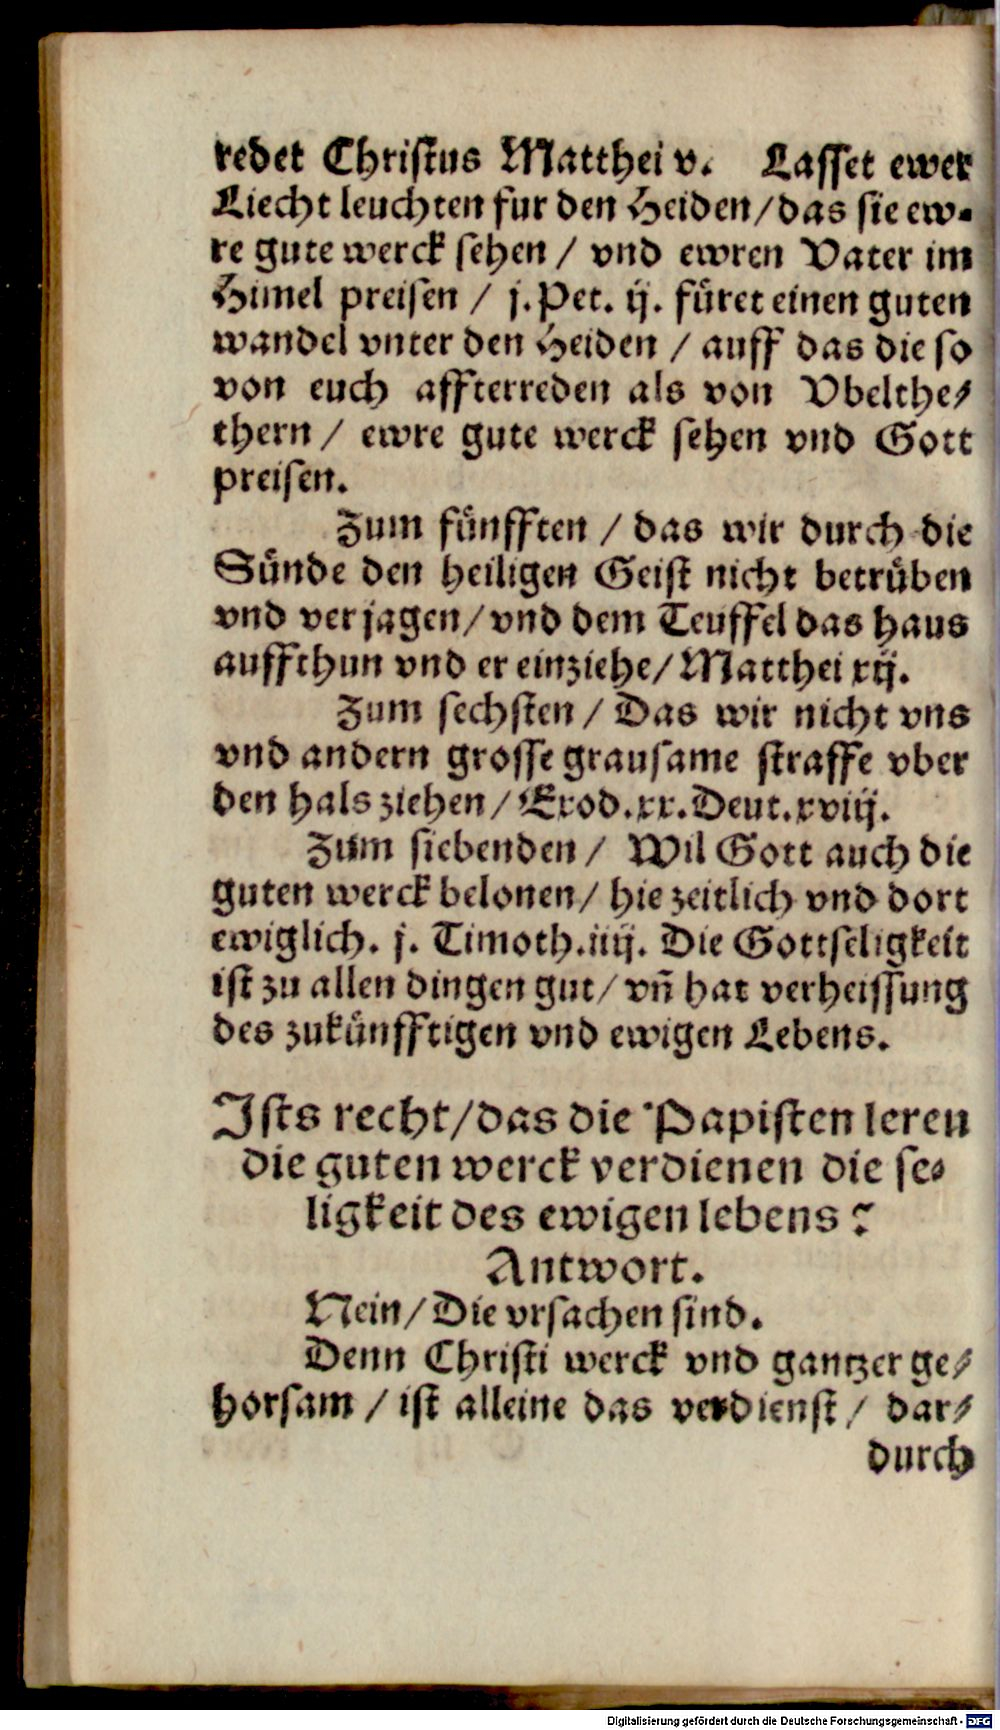 redet Christus Matthei v. Lasset ewer
Liecht leuchten fur den Heiden/das sie ew-
re gute werck sehen / vnd ewren Vater im
Himel preisen / j. Pet. ij. füret einen guten
wandel vnter den Heiden / auff das die so
von euch affterreden als von Vbelthe-
thern / ewre gute werck sehen vnd Gott
preisen.
Zum fünfften / das wir durch die
Sünde den heiligen Geist nicht betrüben
vnd verjagen/vnd dem Teuffel das haus
auffthun vnd er einziehe/Matthei xij.
Zum sechsten / Das wir nicht vns
vnd andern grosse grausame straffe vber
den hals ziehen / Exod.xx.Deut.xviij.
Zum siebenden / Wil Gott auch die
guten werck belonen/ hie zeitlich vnd dort
ewiglich. j. Timoth.iiij. Die Gottseligkeit
ist zu allen dingen gut/ vñ hat verheissung
des zukünfftigen vnd ewigen Lebens.
Ists recht/das die Papisten leren
die guten werck verdienen die se-
ligkeit des ewigen lebens?
Antwort.
Nein/Die vrsachen sind.
Denn Christi werck vnd gantzer ge-
horsam / ist alleine das verdienst / dar-
durch
Digitalisierung gefördert durch die Deutsche Forschungsgemeinschaft - DFG